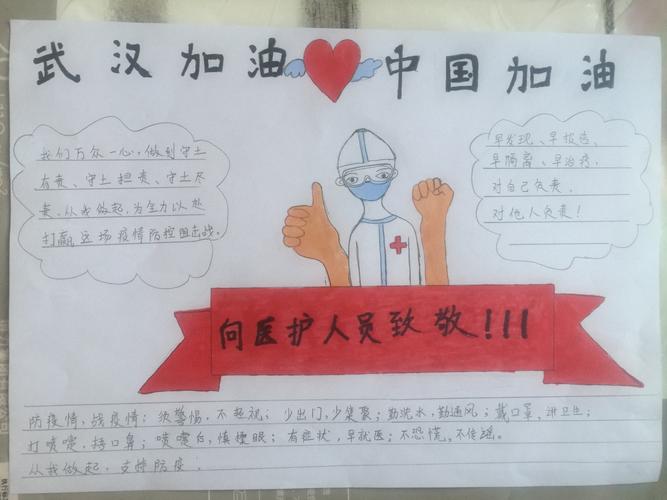 武汉加油 中国加油
我们万众一心,做到守土
有责、守土担责、守土尽
责。从我做起,为全力以赴
打赢这场疫情防控阻击战。
早发现、早报告、
早隔离、早治疗,
对自己负责,
对他人负责!
向医护人员致敬!!!
防疫情,战疫情;须警惕,不轻视;少出门,少集聚;勤洗水,勤通风;戴口罩,讲卫生;
打喷嚏,捂口鼻;喷嚏后,慎揉眼;有症状,早就医;不恐慌,不传谣。
从我做起,支持防疫.